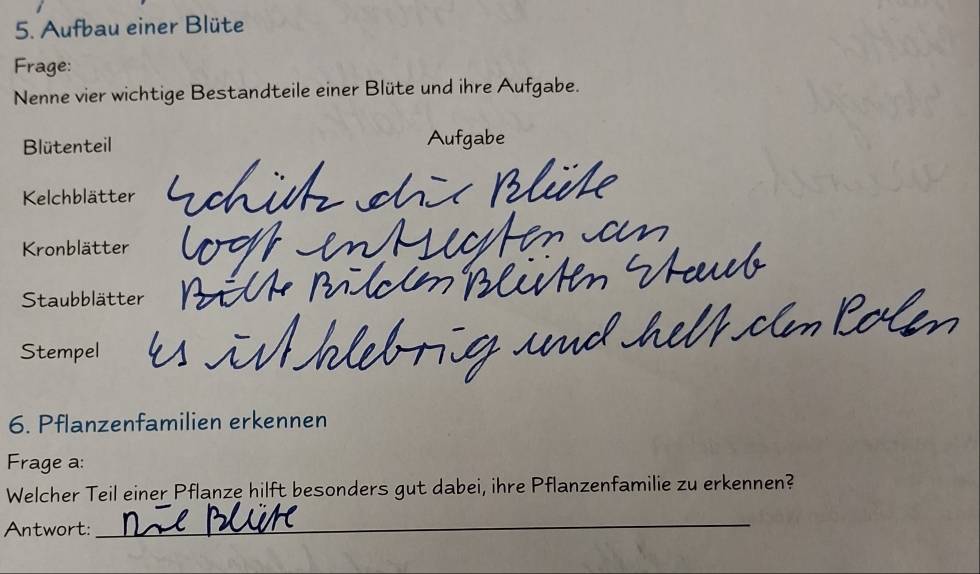 5. Aufbau einer Blüte
Frage:
Nenne vier wichtige Bestandteile einer Blüte und ihre Aufgabe.
Blütenteil Aufgabe
Kelchblätter schütz die Blüte
Kronblätter logt entsegten an
Staubblätter Bilden Blüten Staub
Stempel Es ist klebrig und helt den Polen
6. Pflanzenfamilien erkennen
Frage a:
Welcher Teil einer Pflanze hilft besonders gut dabei, ihre Pflanzenfamilie zu erkennen?
Antwort: Die Blüte